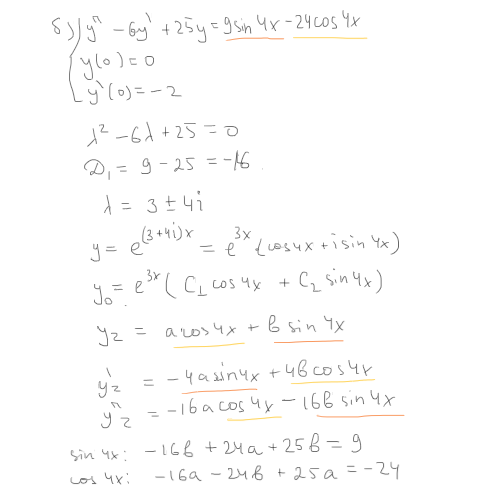 б) y'' - 6y' + 25y = 9sin4x - 24cos4x
y(0) = 0
y'(0) = -2
λ² - 6λ + 25 = 0
D₁ = 9 - 25 = -16.
λ = 3 ± 4i
y = e^{(3+4i)x} = e^{3x}(cos4x + isin4x)
y₀ = e^{3x}(C₁cos4x + C₂sin4x)
y₂ = acos4x + bsin4x
y'₂ = -4asin4x + 4bcos4x
y''₂ = -16acos4x - 16bsin4x
sin4x: -16b + 24a + 25b = 9
cos4x: -16a - 24b + 25a = -24